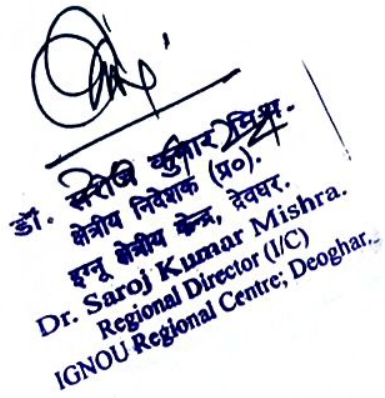 डॉ. सरोज कुमार मिश्र.
क्षेत्रीय निदेशक (प्र०).
इग्नू क्षेत्रीय केन्द्र, देवघर.
Dr. Saroj Kumar Mishra.
Regional Director (I/C)
IGNOU Regional Centre; Deoghar.